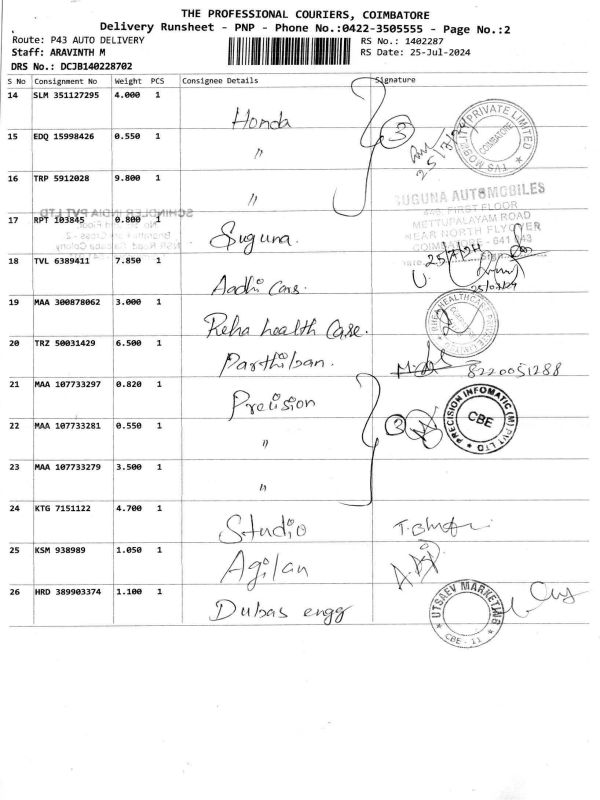 THE PROFESSIONAL COURIERS, COIMBATORE
Delivery Runsheet - PNP - Phone No.:0422-3505555 - Page No.:2
Route: P43 AUTO DELIVERY
RS No.: 1402287
Staff: ARAVINTH M
RS Date: 25-Jul-2024
DRS No.: DCJB140228702
S No Consignment No Weight PCS Consignee Details Signature
14 SLM 351127295 4.000 1 Honda
3 25/7/24
MOBILITY PRIVATE LIMITED * TVS * COIMBATORE
15 EDQ 15998426 0.550 1 "
16 TRP 5912028 9.800 1 "
SUGUNA AUTOMOBILES
FIRST FLOOR
METTUPALAYAM ROAD
NEAR NORTH FLYOVER
COIMBATORE - 641 043
SCHINDLER INDIA PVT LTD
17 RPT 103845 0.800 1 Suguna.
25/7/24
18 TVL 6389411 7.850 1 Aadhi Cars.
25/07/24
19 MAA 300878062 3.000 1 Reha health Case.
20 TRZ 50031429 6.500 1 Parthiban.
8220051288
21 MAA 107733297 0.820 1 Precision
3
PRECISION INFOMATIC (M) PVT LTD * CBE
22 MAA 107733281 0.550 1 "
23 MAA 107733279 3.500 1 "
24 KTG 7151122 4.700 1 Studio
25 KSM 938989 1.050 1 Agilan
26 HRD 389903374 1.100 1 Dubas engg
* UTSAEV MARKETING * CBE - 11